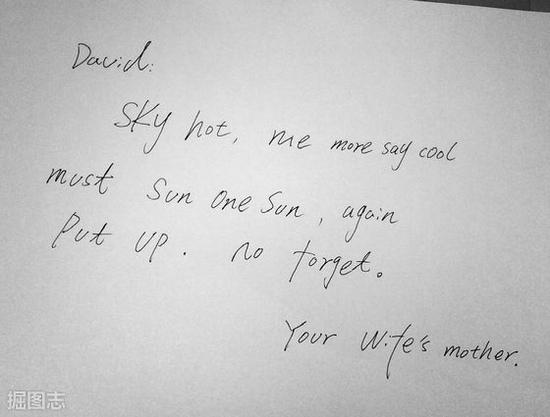 David:
SKY hot, me more say cool
must Sun one Sun, again
Put up. no forget。
Your Wife's mother.
掘图志